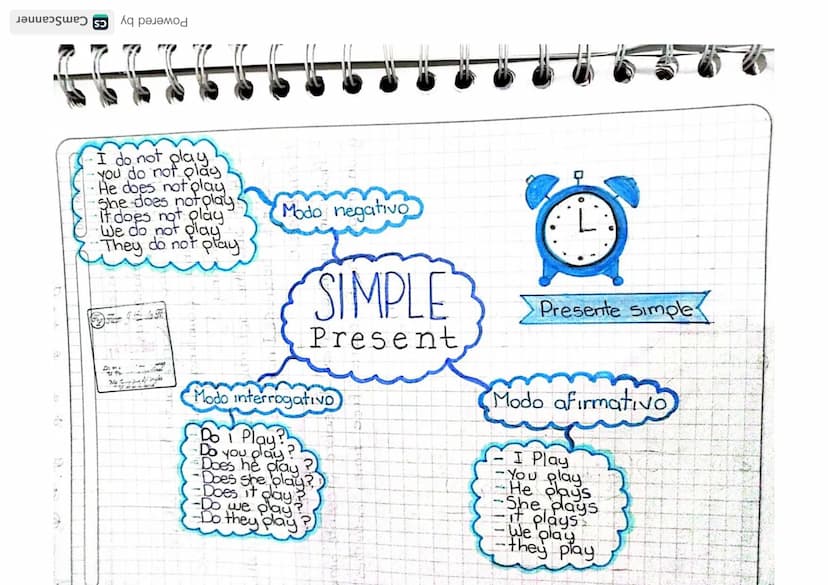 Powered by CS CamScanner
- I do not play
- you do not play
- He does not play
- She does not play
- It does not play
- We do not play
- They do not play
Modo negativo
SIMPLE
Present
Presente simple
Modo interrogativo
- Do i Play?
- Do you play?
- Does he play?
- Does she play?
- Does it play?
- Do we play?
- Do they play?
Modo afirmativo
- I Play
- You play
- He plays
- She plays
- it plays
- We play
- they play